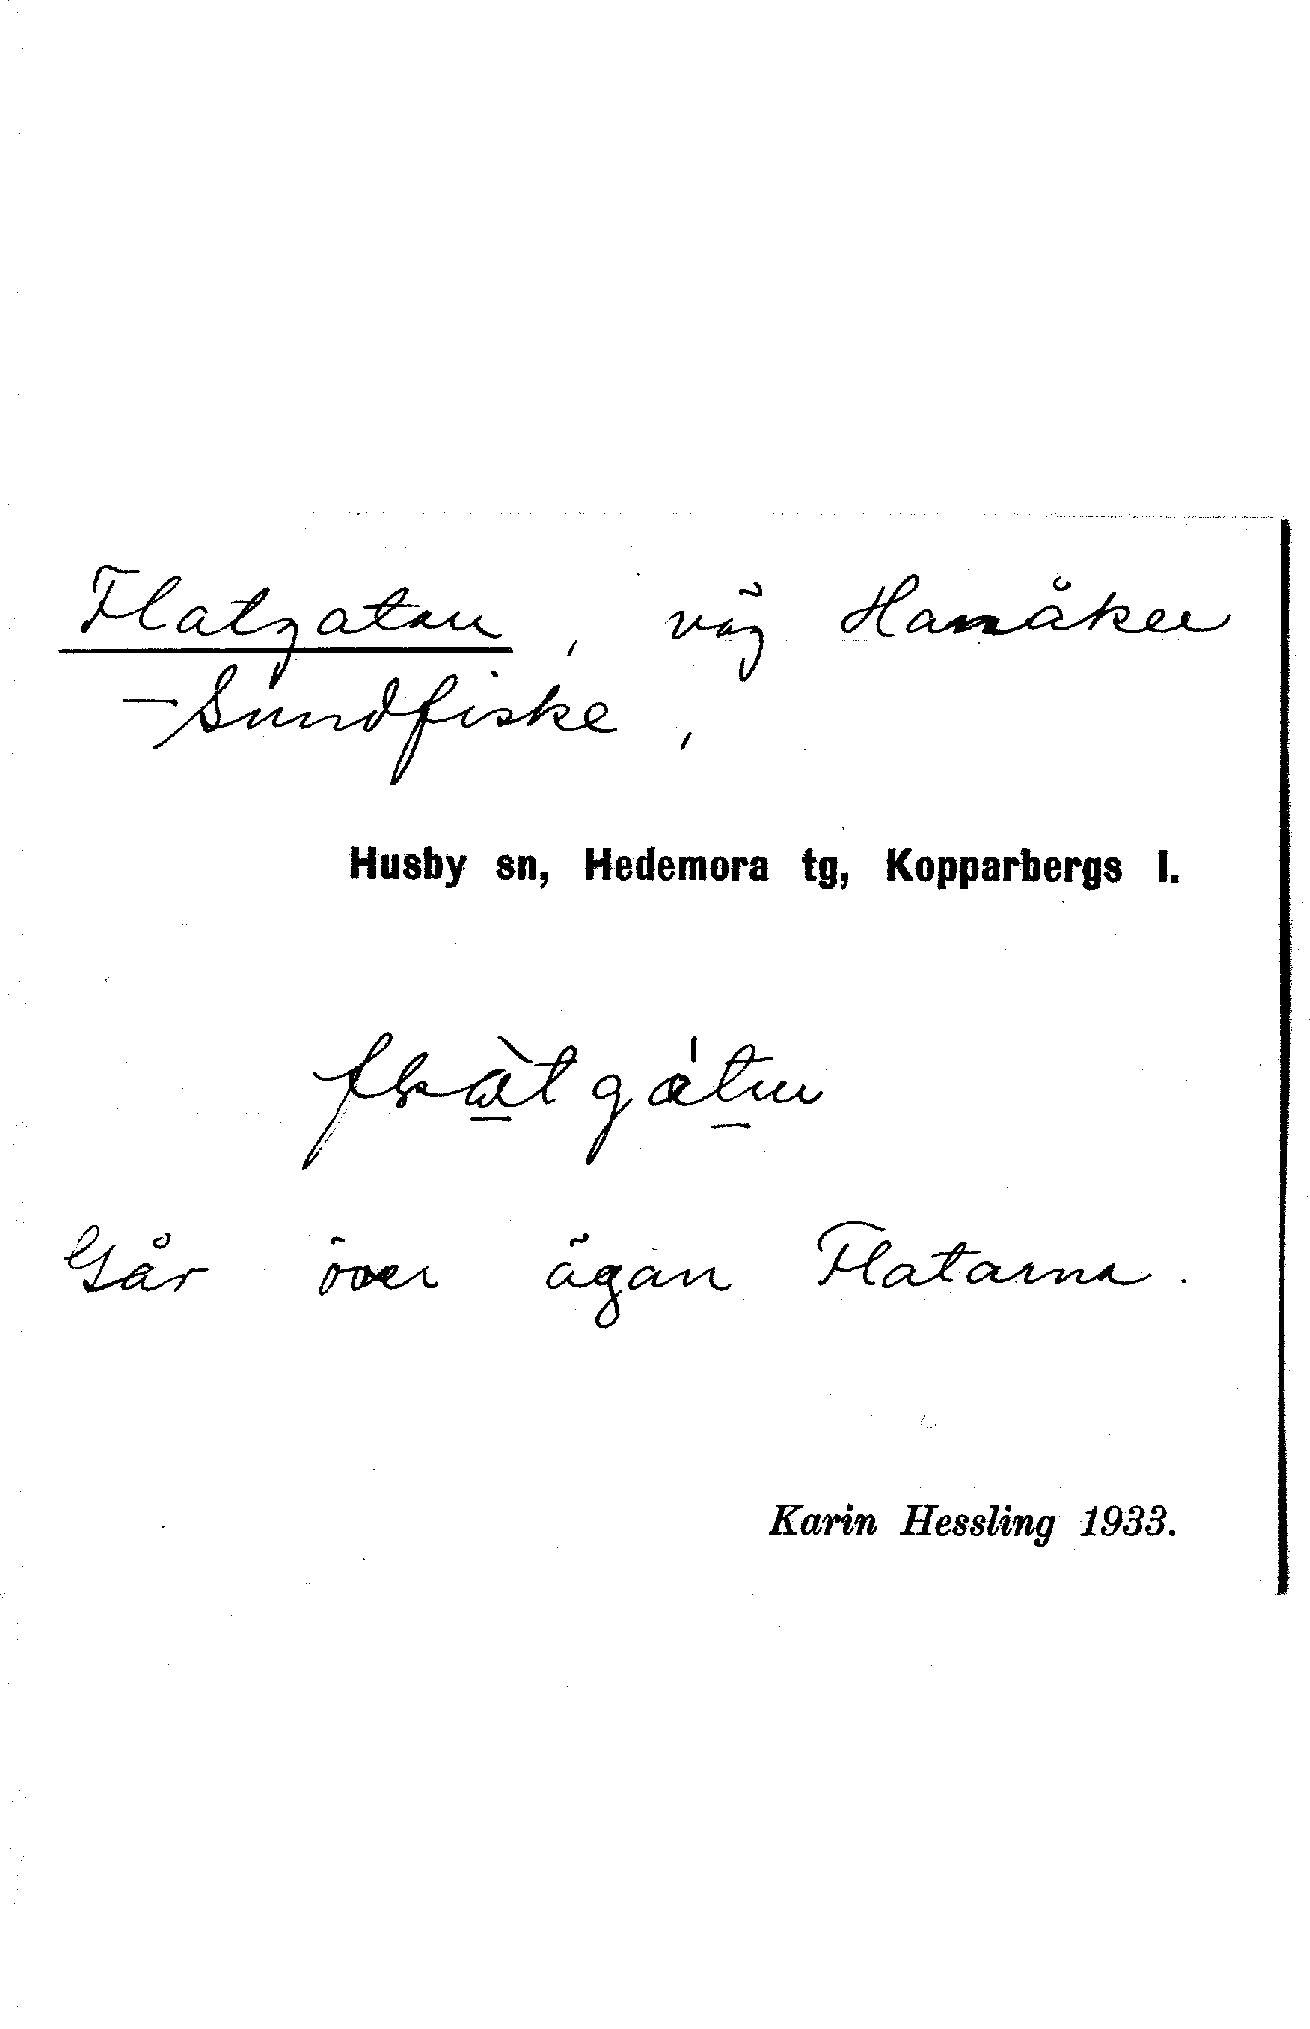 Flatgatan, väg Hanåker
–Sundfiske,
Husby sn, Hedemora tg, Kopparbergs l.
Går över ägan Flatarna.
Karin Hessling 1933.